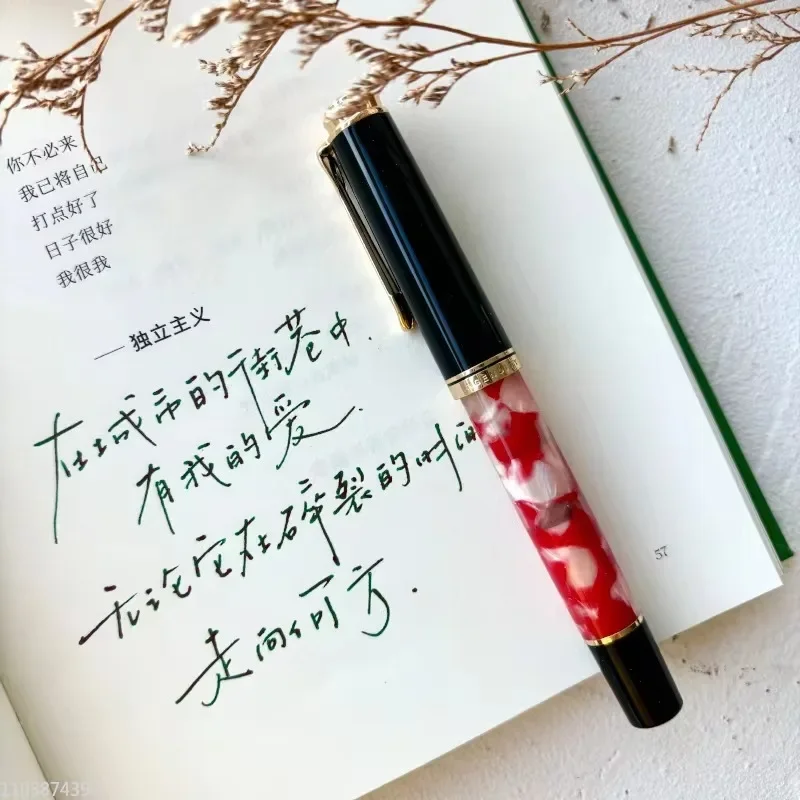 你不必来
我已将自己
打点好了
日子很好
我很我
——独立主义
在城市的街巷中.
有我的爱.
无论它在碎裂的时间
走向何方.
57
110387439